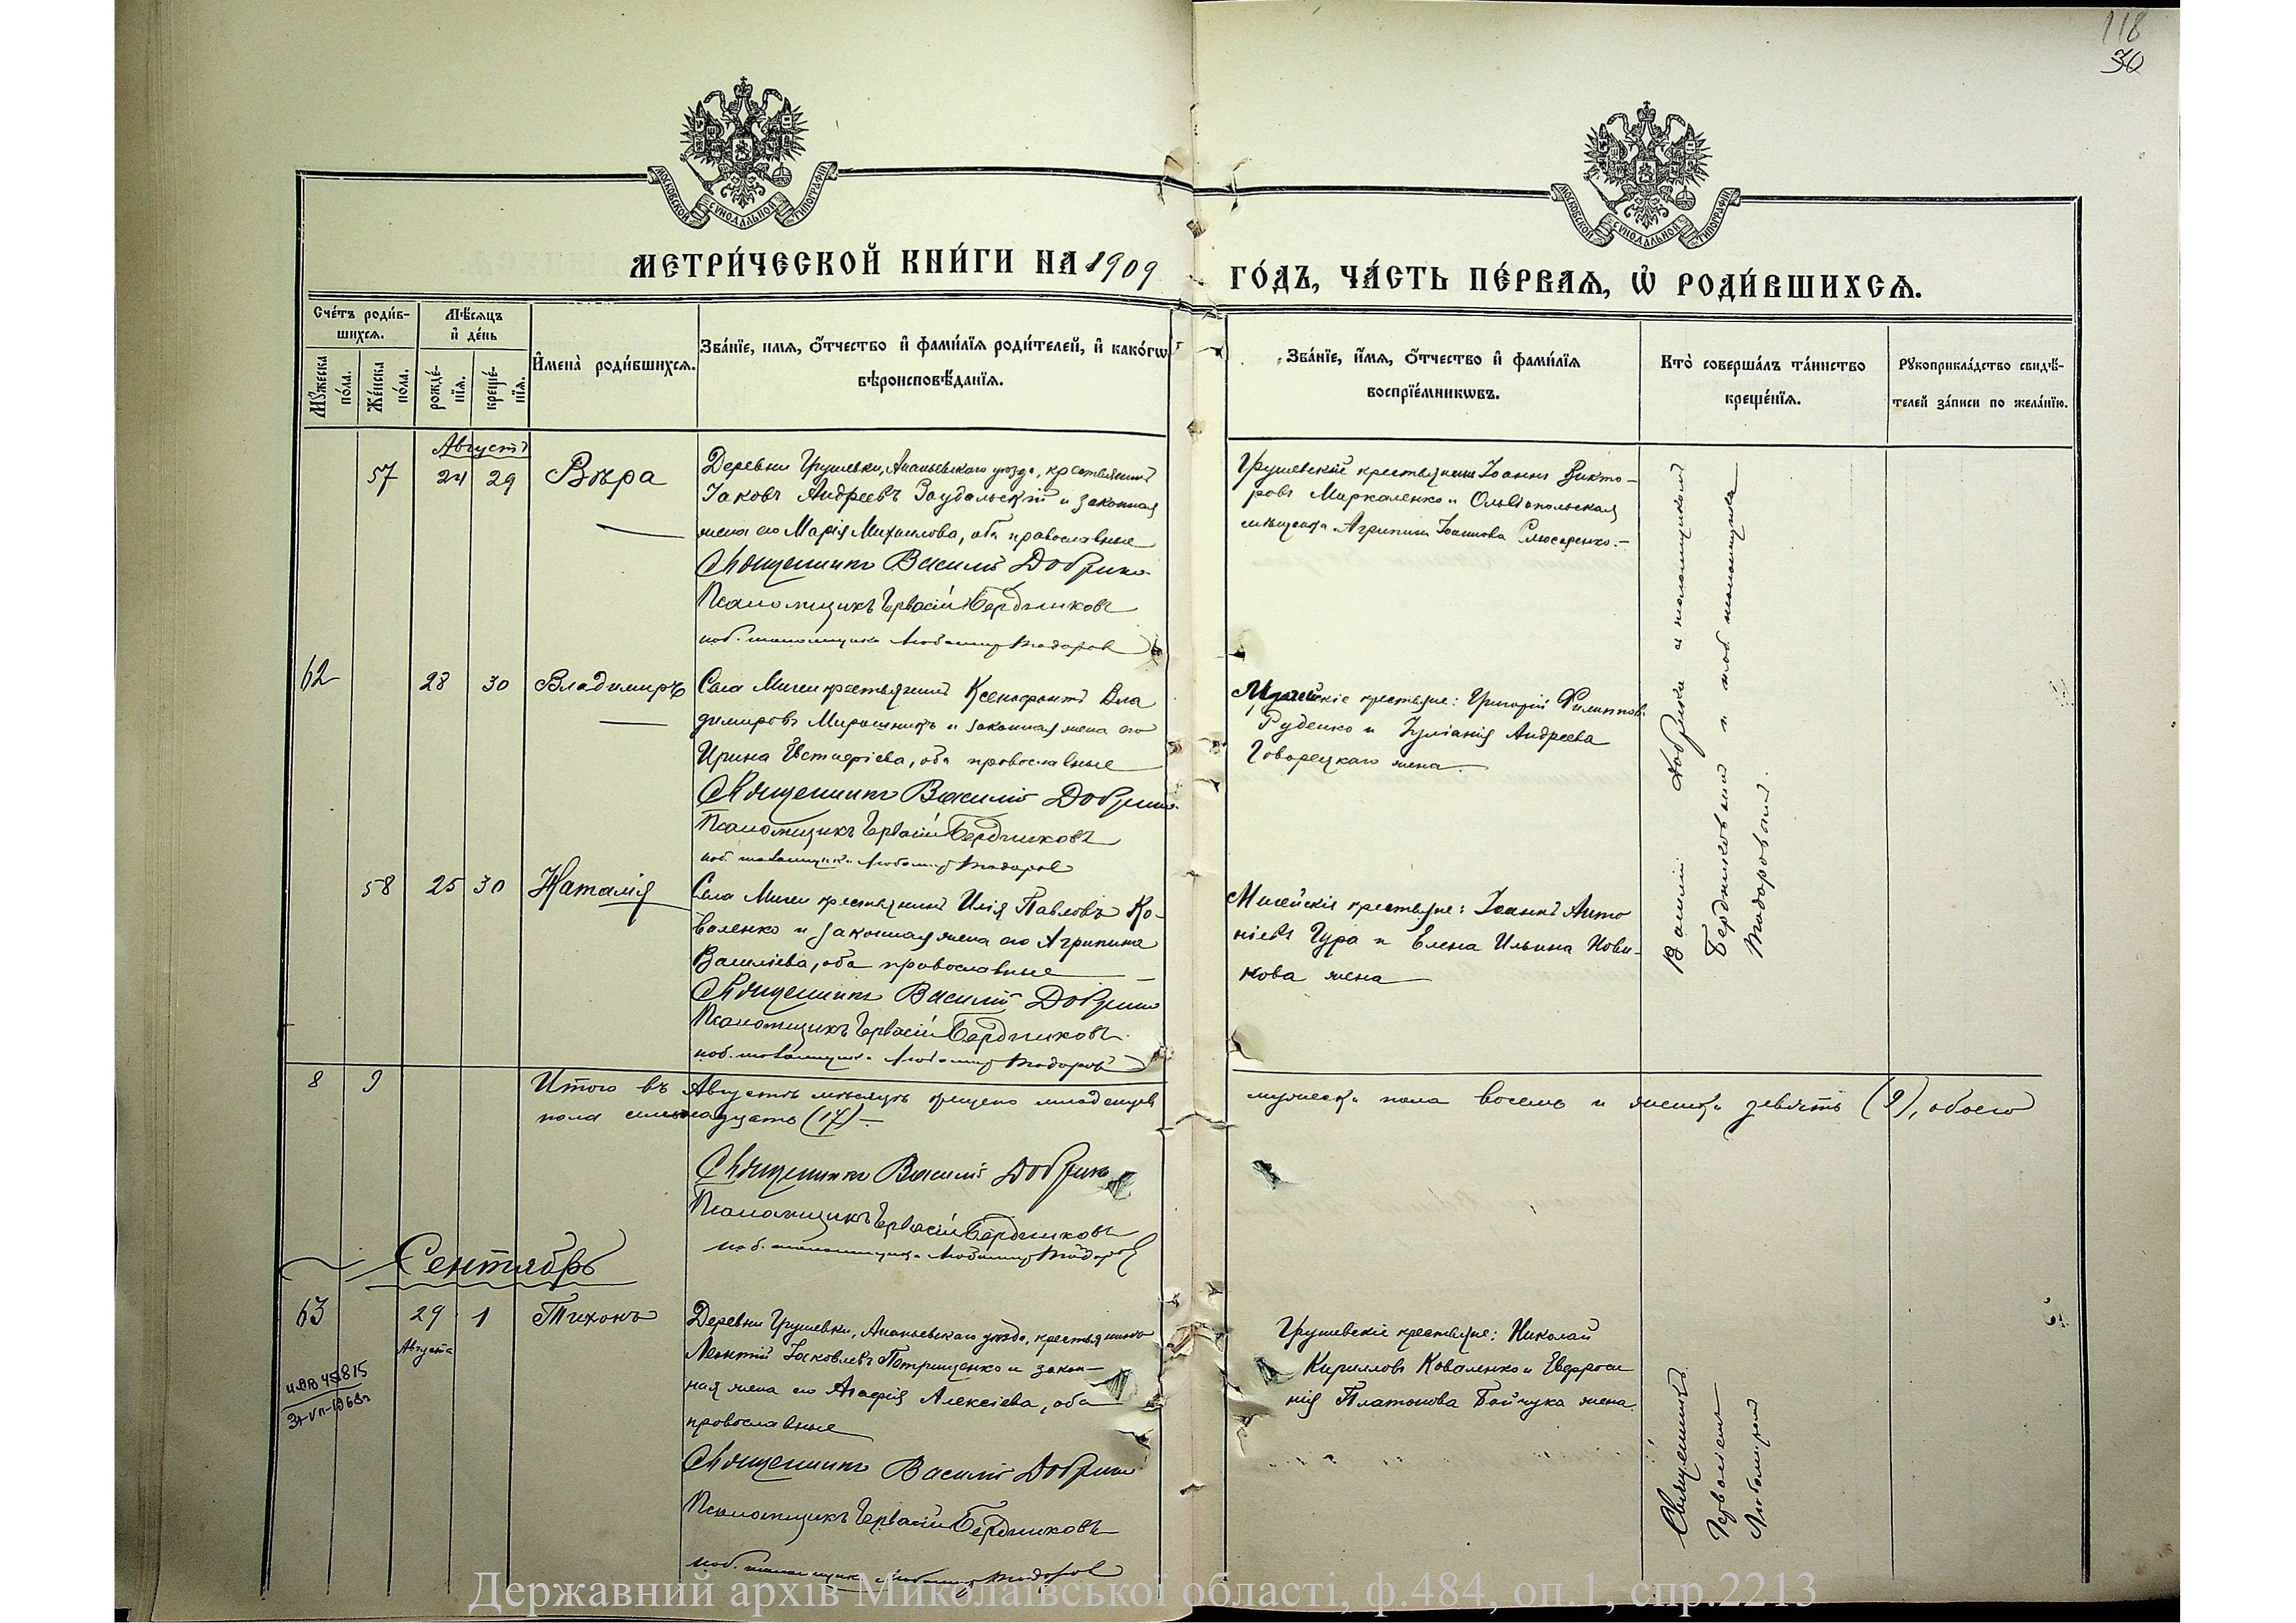 118
30
МОСКОВСКОЙ СѴНОДАЛЬНОЙ ТИПОГРАФІИ.
МОСКОВСКОЙ СѴНОДАЛЬНОЙ ТИПОГРАФІИ.
МЕТРИ́ЧЕСКОЙ КНИ́ГИ НА 1909
ГО́ДЪ, ЧА́СТЬ ПЕ́РВАѦ, Ѡ҆ РОДИ́ВШИХСѦ.
Сче́тъ роди́в-
шихсѧ.
Мѹ́жеска
по́ла.
Же́нска
по́ла.
Мѣ́сѧцъ
и҆ де́нь
рожде́-
нїѧ.
креще́-
нїѧ.
И҆мена̀ роди́вшихсѧ.
Зва́нїе, имѧ, ѻ҆́тчество и҆ фами́лїѧ роди́телей, и҆ како́гѡ
вѣроисповѣ́данїѧ.
Зва́нїе, и҆мѧ, ѻ҆́тчество и҆ фами́лїѧ
воспрїе́мникѡвъ.
Кто̀ соверша́лъ та́инство
креще́нїѧ.
Рѹкоприкла́дство свидѣ́-
телей за́писи по жела́нїю.
Августъ
57 24 29 Вѣра
Деревни Грушевки, Ананьевскаго уѣзда, крестьянинъ
Іаковъ Андреевъ и законная
жена его Марія Михаилова, оба православные
Священникъ Василій Добрин
Псаломщикъ Гервасій Бердниковъ
псаломщика Любомир Тодоров
Грушевскій крестьянинъ Іоаннъ Викто-
ровъ Маркаленко и Ольвіопольская
мѣщанка Агрипина Іоаннова Слюсаренко.-
62 28 30 Владимиръ
Села Мигеи крестьянинъ Ксенофонтъ Вла
димировъ Мирошникъ и законная жена его
Ирина Евстафіева, оба православные
Священникъ Василій Добрин
Псаломщикъ Гервасій Бердниковъ
псаломщика Любомир Тодоров
крестьяне: Григорій Филиппов.
Руденко и Іуліанія Андреева
Говорецкаго жена.
58 25 30 Наталія
Села Мигеи крестьянинъ Илія Павловъ Ко-
валенко и законная жена его Агрипина
Василіева, оба православные
Священникъ Василій Добрин
Псаломщикъ Гервасій Бердниковъ
псаломщика Любомир Тодоров
Мигейскіе крестьяне: Іоаннъ Анто
ніевъ Гура и Елена Ильина Нови-
кова жена
Василій и псаломщиком
Бердниковым и псаломщика
Тодоровым.
8 9
Итого въ Августѣ мѣсяцѣ крещено младенцевъ
мужеска пола восемь и женска девять (9), обоего
пола семьнадцать (17) –
Священникъ Василій Добрин
Псаломщикъ Гервасій Бердниковъ
псаломщика Любомир Тодоров
Сентябрь
63 29 1 Тихонъ
Августа
45815
Деревни Грушевки, Ананьевскаго уѣзда, крестьянинъ
Леонтій Іаковлевъ Петрищенко и закон-
ная жена его Агафія Алексіева, оба
православные
Священникъ Василій Добрин
Псаломщикъ Гервасій Бердниковъ
псаломщик Любомир Тодоров
Грушевскіе крестьяне: Николай
Кирилловъ Коваленко и Евфроси
нія Платонова Бойчука жена.
Священникъ
Гервасіем
Любомиром
Державний архів Миколаївської області, ф.484, оп.1, спр.2213